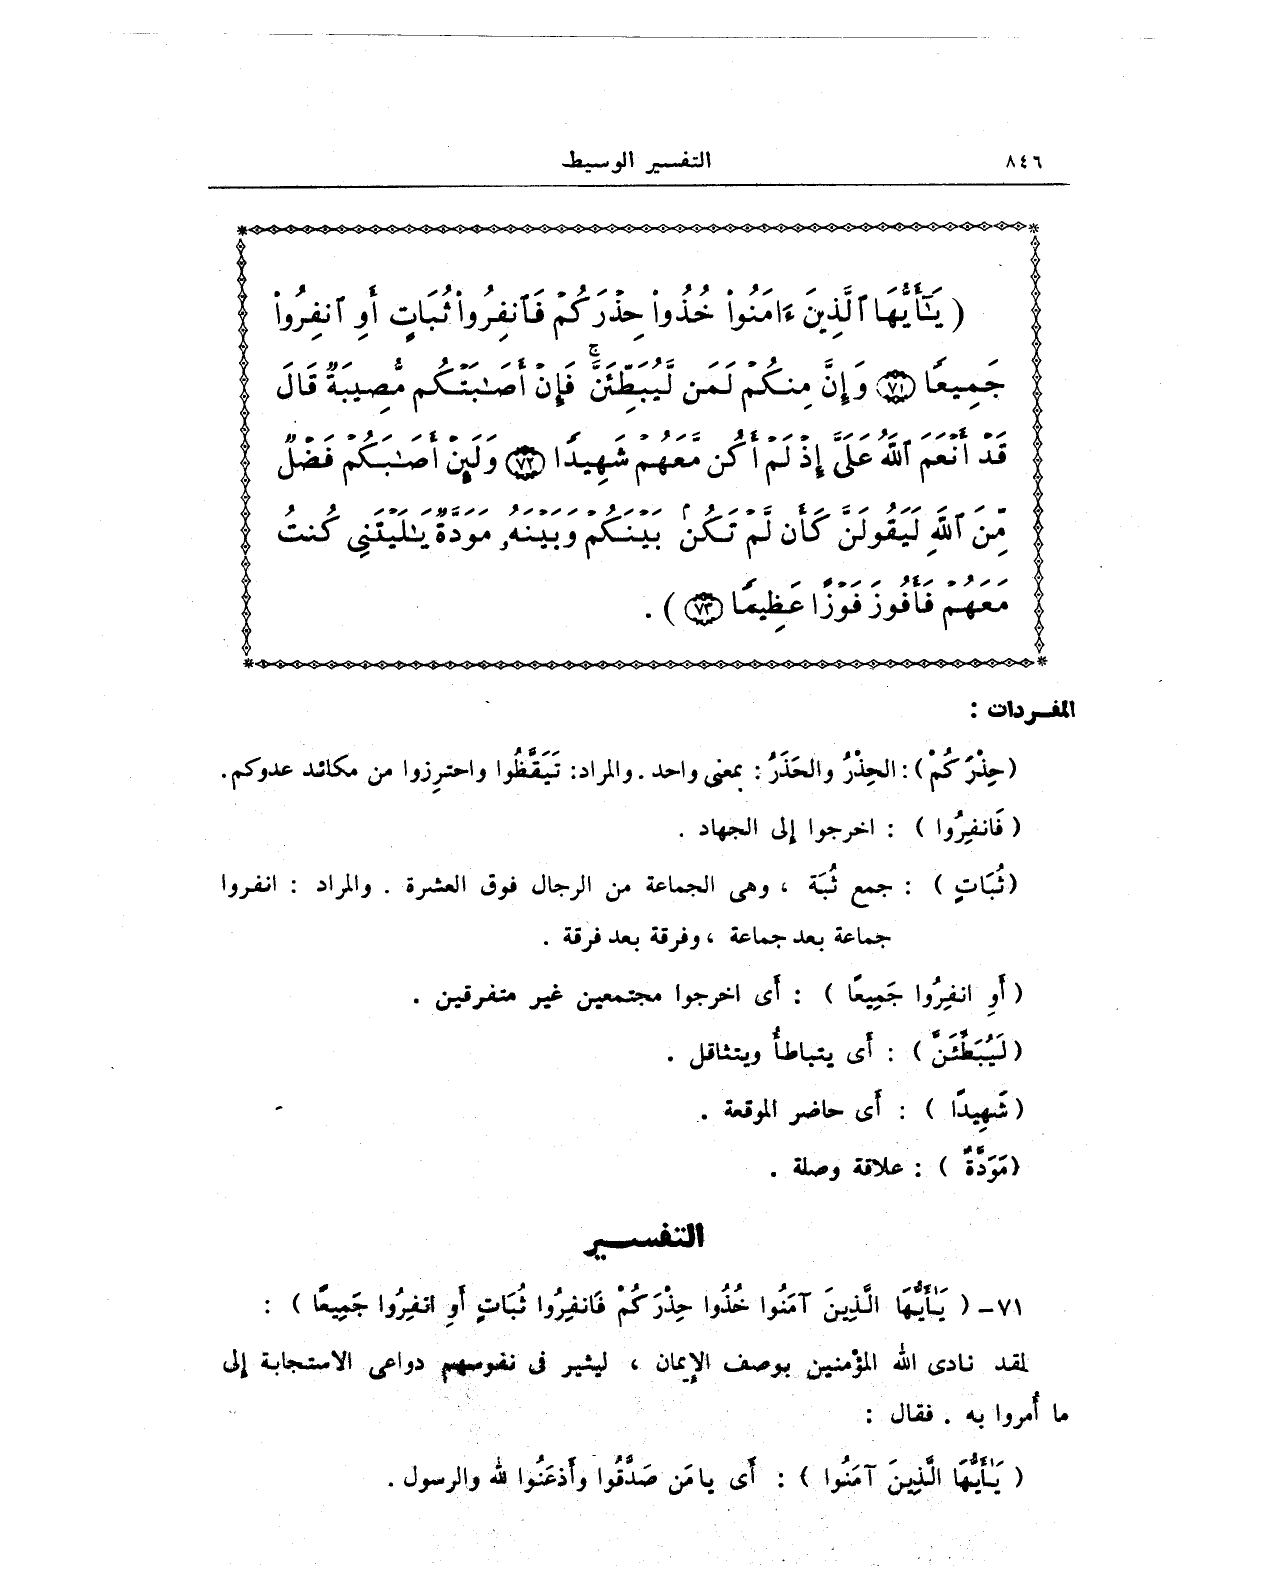 ٨٤٦ التفسير الوسيط
( يَٰٓأَيُّهَا ٱلَّذِينَ ءَامَنُوا۟ خُذُوا۟ حِذْرَكُمْ فَٱنفِرُوا۟ ثُبَاتٍ أَوِ ٱنفِرُوا۟
جَمِيعًا ﴿٧١﴾ وَإِنَّ مِنكُمْ لَمَن لَّيُبَطِّئَنَّ ۖ فَإِنْ أَصَٰبَتْكُم مُّصِيبَةٌ قَالَ
قَدْ أَنْعَمَ ٱللَّهُ عَلَىَّ إِذْ لَمْ أَكُن مَّعَهُمْ شَهِيدًا ﴿٧٢﴾ وَلَئِنْ أَصَٰبَكُمْ فَضْلٌ
مِّنَ ٱللَّهِ لَيَقُولَنَّ كَأَن لَّمْ تَكُنۢ بَيْنَكُمْ وَبَيْنَهُۥ مَوَدَّةٌ يَٰلَيْتَنِى كُنتُ
مَعَهُمْ فَأَفُوزَ فَوْزًا عَظِيمًا ﴿٧٣﴾ ) .
المفـردات :
(حِذْرَكُمْ) : الحِذْرُ والحَذَرُ : بمعنى واحد . والمراد: تَيَقَّظُوا واحترِزوا من مكائد عدوكم .
( فَانفِرُوا ) : اخرجوا إلى الجهاد .
(ثُبَاتٍ ) : جمع ثُبَة ، وهى الجماعة من الرجال فوق العشرة . والمراد : انفروا
جماعة بعد جماعة ، وفرقة بعد فرقة .
( أَوِ انفِرُوا جَمِيعًا ) : أَى اخرجوا مجتمعين غير متفرقين .
( لَيُبَطِّئَنَّ ) : أَى يتباطأُ ويتثاقل .
( شَهِيدًا ) : أَى حاضر الموقعة .
(مَوَدَّةٌ ) : علاقة وصلة .
التفســـير
٧١- ( يَٰأَيُّهَا الَّذِينَ آمَنُوا خُذُوا حِذْرَكُمْ فَانفِرُوا ثُبَاتٍ أَوِ انفِرُوا جَمِيعًا ) :
لقد نادى الله المؤمنين بوصف الإيمان ، ليثير فى نفوسهم دواعى الاستجابة إلى
ما أُمروا به . فقال :
( يَٰأَيُّهَا الَّذِينَ آمَنُوا ) : أَى يا مَن صَدَّقُوا وأَذعَنُوا لله والرسول .